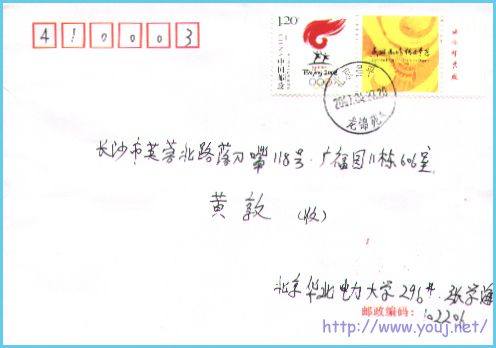 410003
1.20
中国邮政
CHINA
Beijing 2008
北京昌平
2007.04.27.20
长沙市芙蓉北路落刀嘴118号.广福园11栋606室
黄敦(收)
北京华北电力大学296#.张学海
邮政编码:102206
http://www.youj.net/